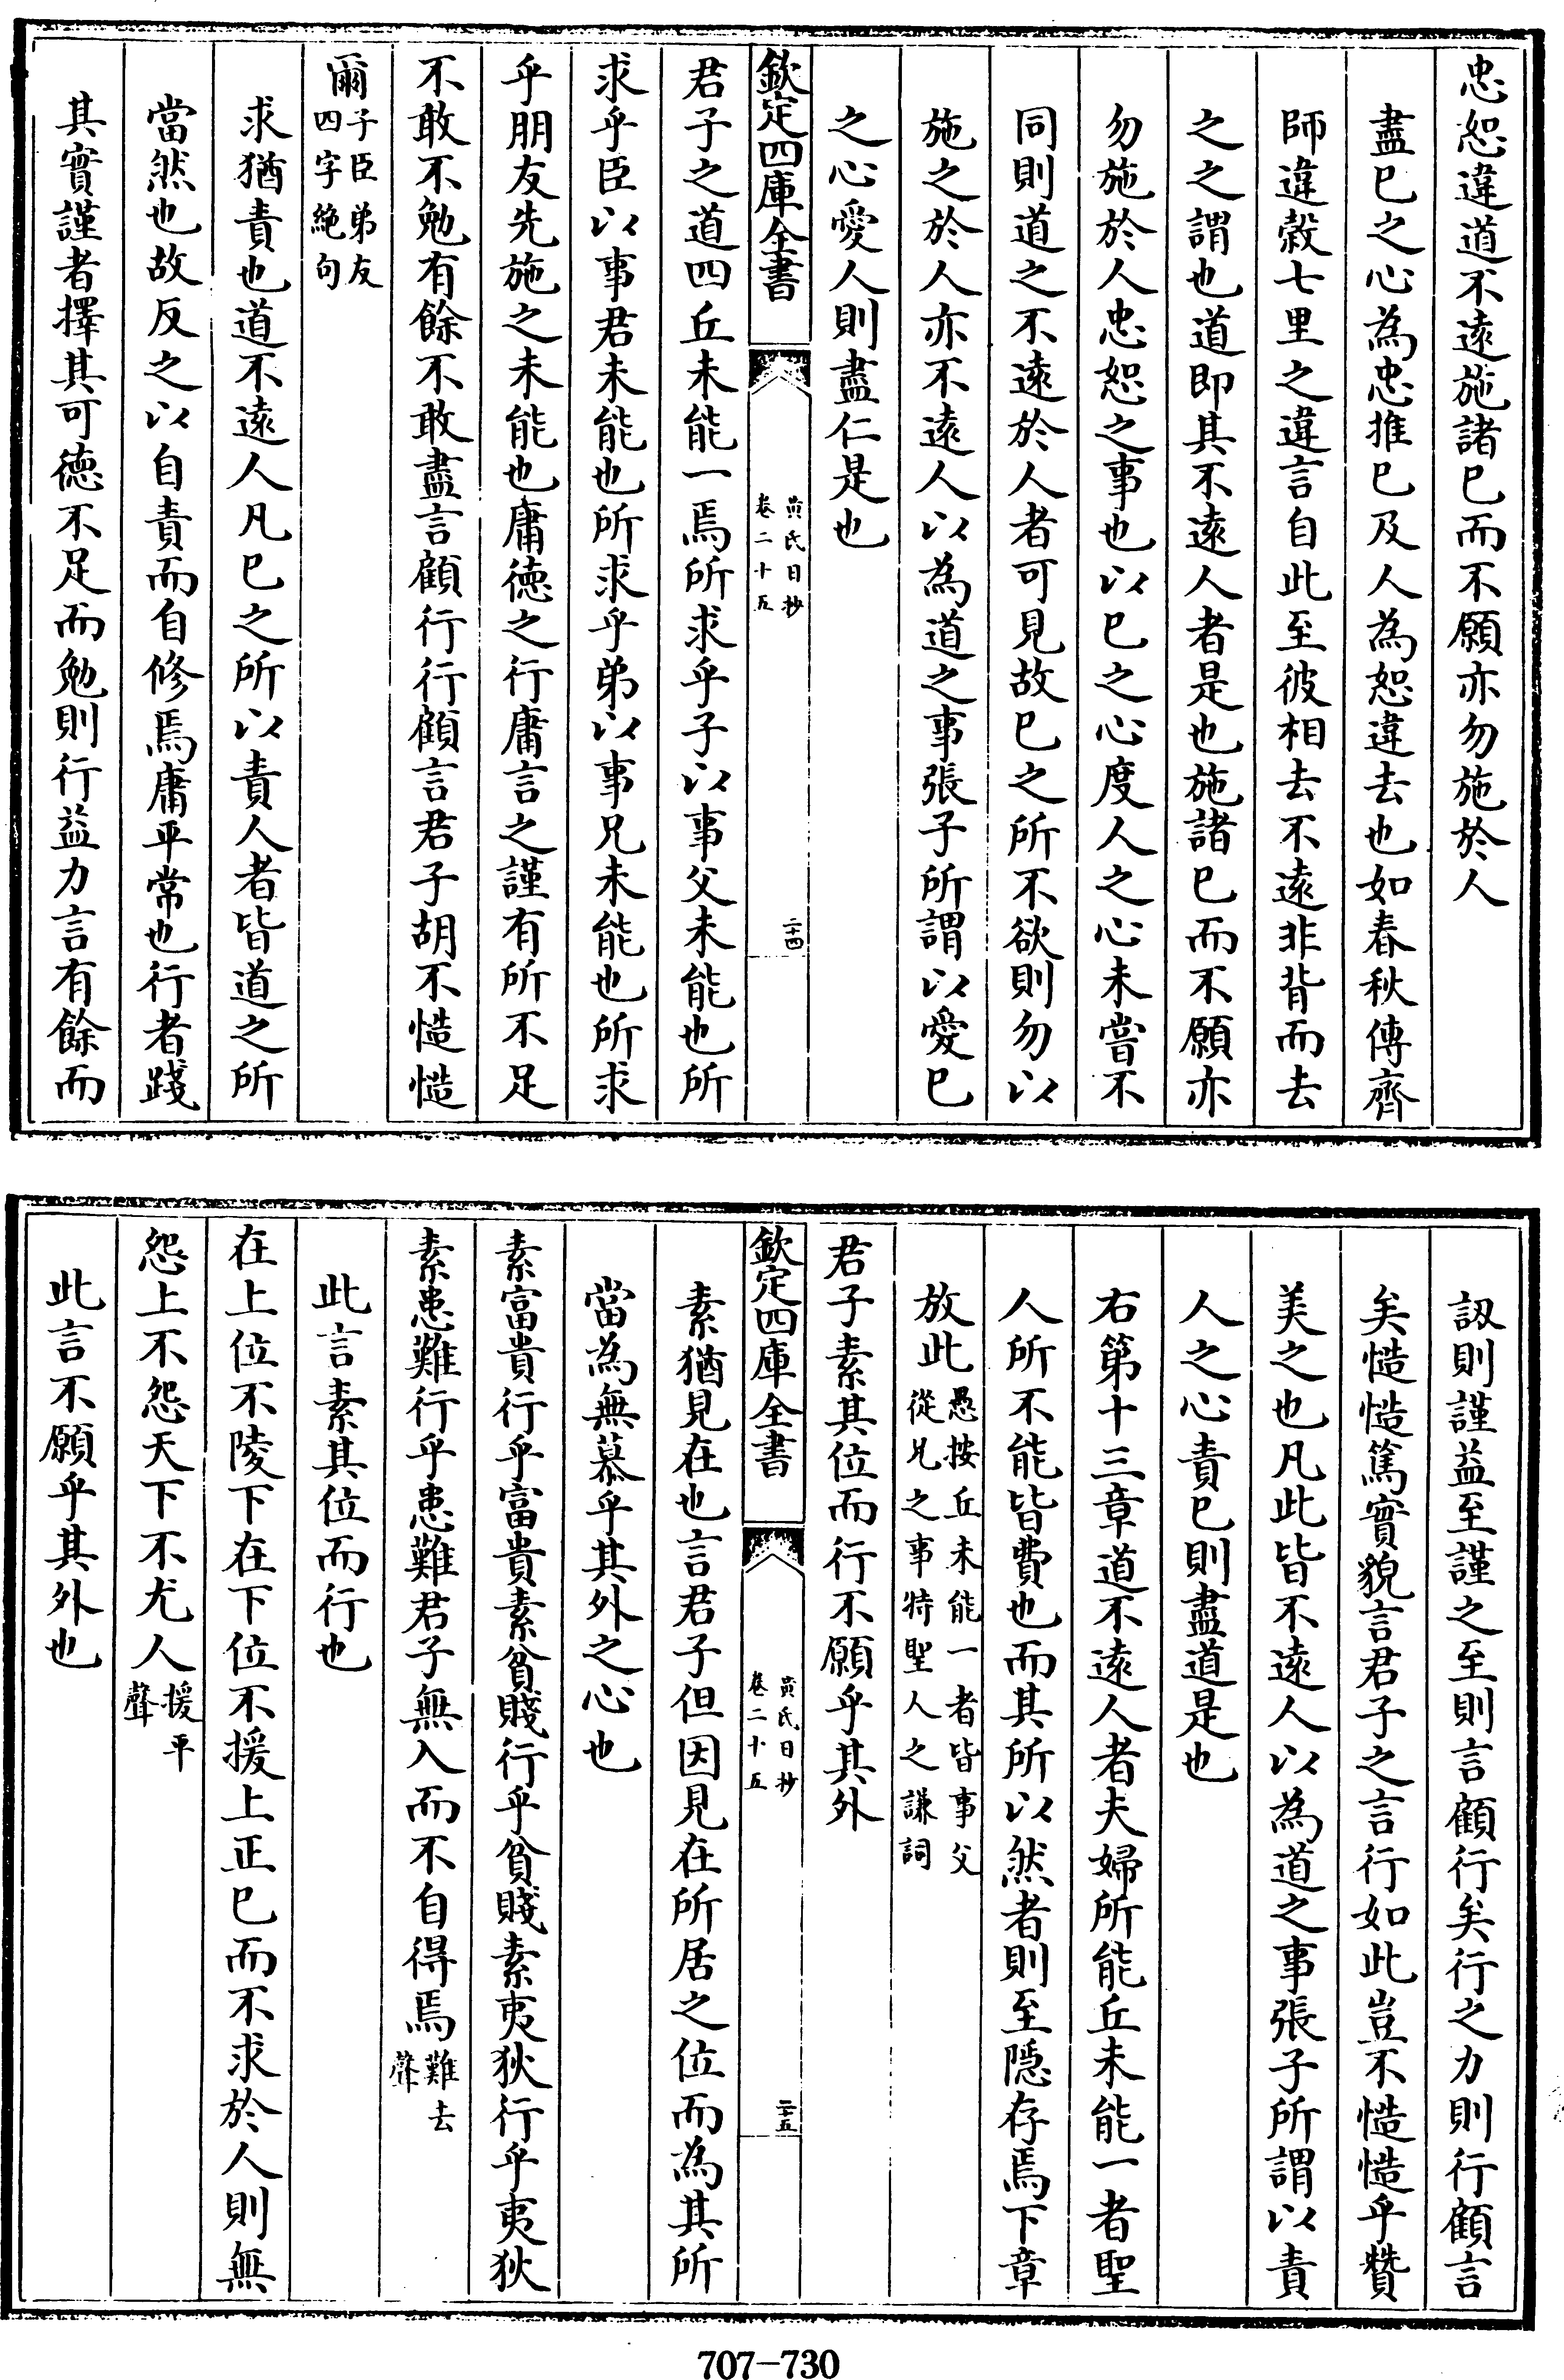 忠恕違道不遠施諸已而不願亦勿施於人
盡已之心為忠推已及人為恕違去也如春秋傳齊
師違穀七里之違言自此至彼相去不遠非背而去
之之謂也道即其不遠人者是也施諸已而不願亦
勿施於人忠恕之事也以已之心度人之心未嘗不
同則道之不遠於人者可見故已之所不欲則勿以
施之於人亦不遠人以為道之事張子所謂以愛已
之心愛人則盡仁是也
欽定四庫全書
黃氏日抄
卷二十五
二十四
君子之道四丘未能一焉所求乎子以事父未能也所
求乎臣以事君未能也所求乎弟以事兄未能也所求
乎朋友先施之未能也庸德之行庸言之謹有所不足
不敢不勉有餘不敢盡言顧行行顧言君子胡不慥慥
爾子臣弟友
四字絶句
求猶責也道不遠人凡已之所以責人者皆道之所
當然也故反之以自責而自修焉庸平常也行者踐
其實謹者擇其可德不足而勉則行益力言有餘而
訒則謹益至謹之至則言顧行矣行之力則行顧言
矣慥慥篤實貌言君子之言行如此豈不慥慥乎贊
美之也凡此皆不遠人以為道之事張子所謂以責
人之心責已則盡道是也
右第十三章道不遠人者夫婦所能丘未能一者聖
人所不能皆費也而其所以然者則至隱存焉下章
放此愚按丘未能一者皆事父
從兄之事特聖人之謙詞
君子素其位而行不願乎其外
欽定四庫全書
黃氏日抄
卷二十五
二十五
素猶見在也言君子但因見在所居之位而為其所
當為無慕乎其外之心也
素富貴行乎富貴素貧賤行乎貧賤素夷狄行乎夷狄
素患難行乎患難君子無入而不自得焉難去
聲
此言素其位而行也
在上位不陵下在下位不援上正已而不求於人則無
怨上不怨天下不尤人援平
聲
此言不願乎其外也
707-730